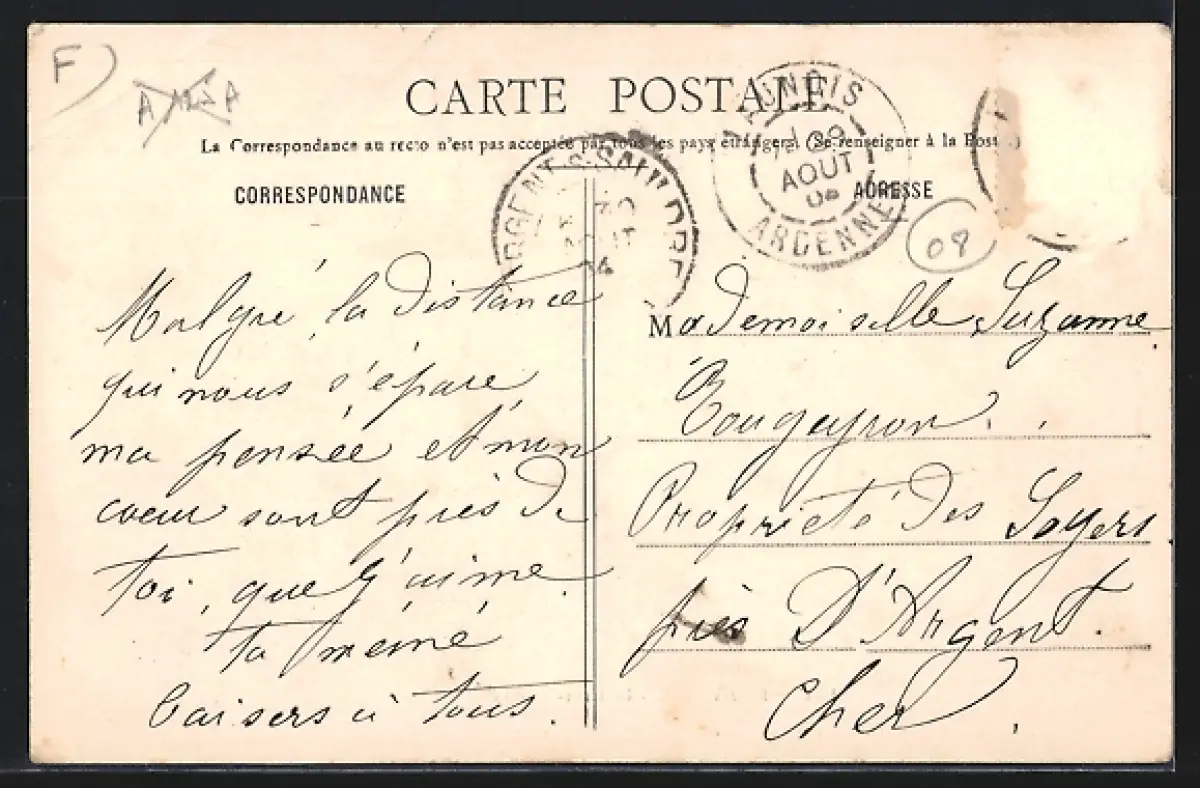 F)
CARTE POSTALE
La Correspondance au recto n'est pas acceptée par tous les pays étrangers. (Se renseigner à la Poste)
CORRESPONDANCE
ADRESSE
LAUNOIS
AOUT
04
ARDENNES
ARGENT-S-SAULDRE
30
Malgré, la distance
qui nous s'épare,
ma pensée et mon
coeur sont près de
toi, que j'aime.
ta mémé
baisers à tous.
Mademoiselle Suzanne
Bougeyron.
Propriété des Loyers
près D'Argent.
Cher.